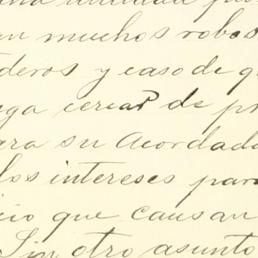 una
en muchos robos
deros y caso de q
ga cercar de pr
ara su Acordada
los intereses par
ico que causan
Sin otro asunto